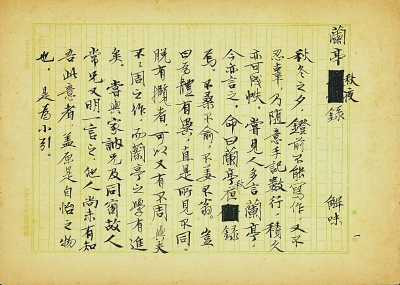 蘭亭秋夜錄
解味
一
秋冬之夕，鐙前不能寫作，又不
忍輟，乃隨意手記數行，積久
亦可成帙。嘗見人多言蘭亭，
今亦言之，命曰蘭亭秋錄
焉。不桑不俞，不姜不翁。豈
曰為體有異，直是所見不同。
脫有懶者，可以又有不周與夫
不周之作，而蘭亭之學有進
矣。嘗與家訥兄及同窗故人
常兄又明言之，他人尚未有知
吾此意者，蓋原是自怡之物
也，是為小引。